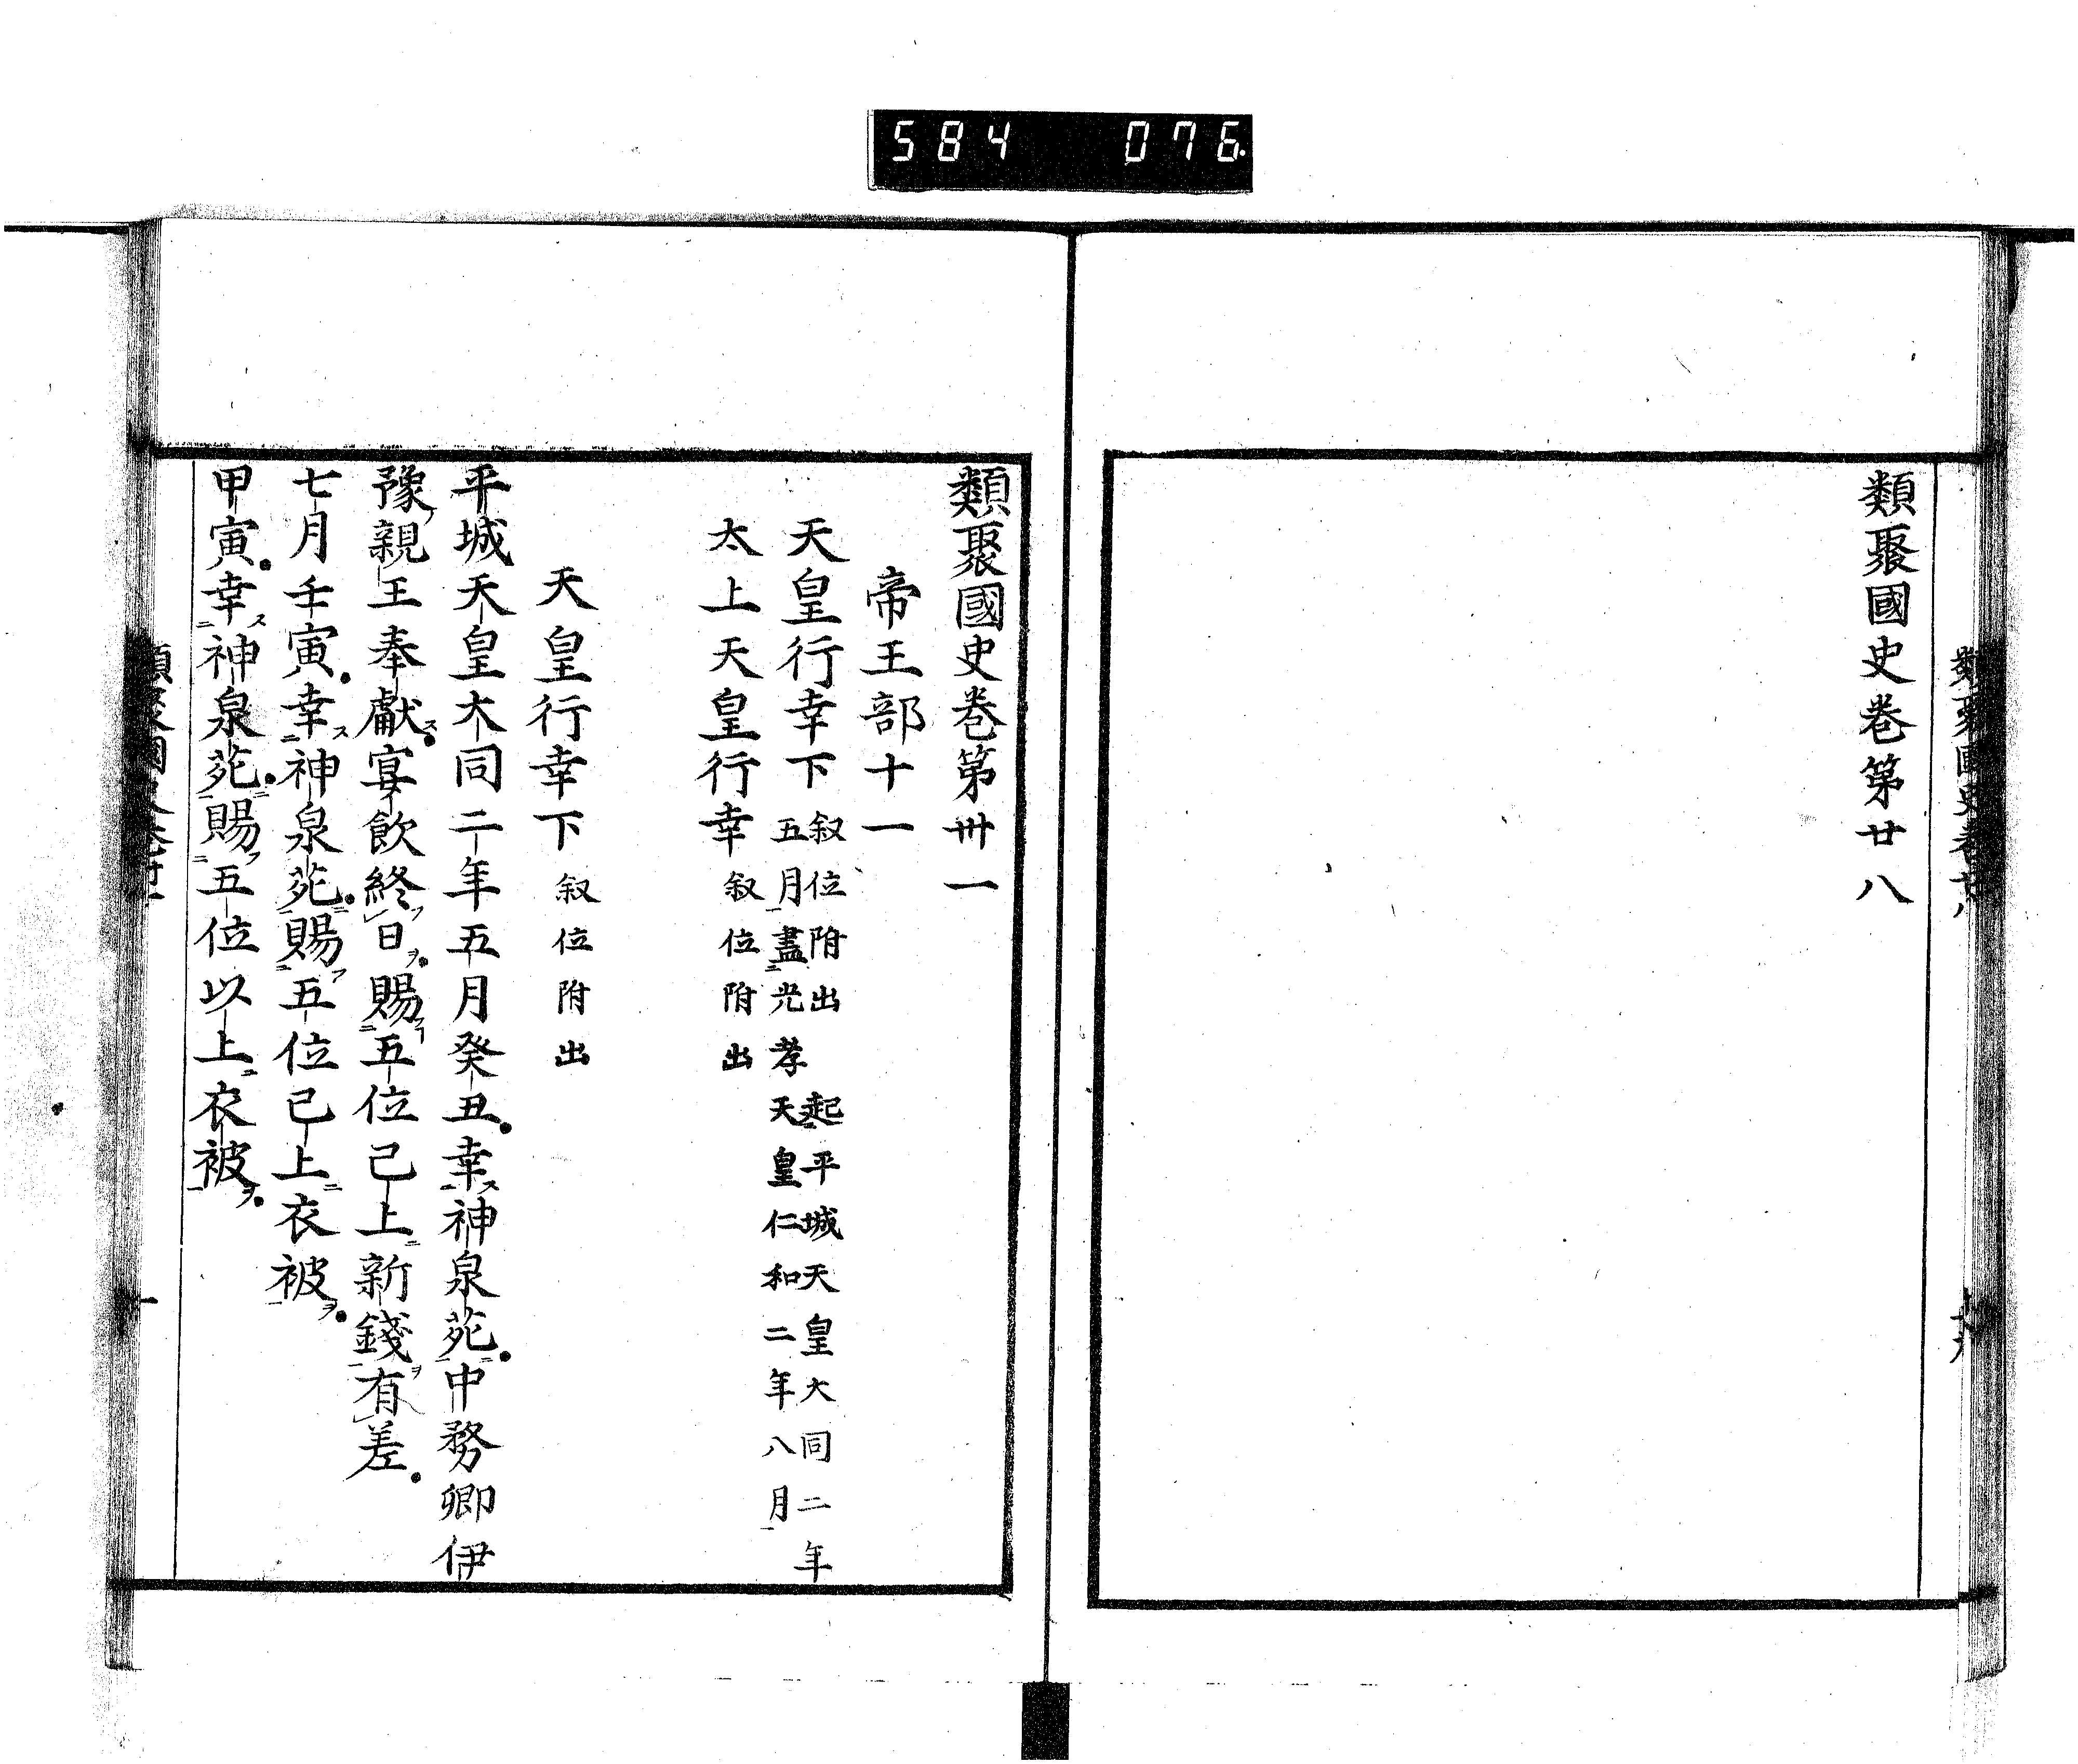 584 076
類聚國史卷第廿八
類聚國史卷第卅一
帝王部十一
天皇行幸下 叙位附出 起平城天皇大同二年
五月盡光孝天皇仁和二年八月
太上天皇行幸 叙位附出
天皇行幸下 叙位附出
平城天皇大同二年五月癸丑幸神泉苑中務卿伊
豫親王奉獻宴飲終日賜五位已上新錢有差
七月壬寅幸神泉苑賜五位已上衣被
甲寅幸神泉苑賜五位以上衣被
一